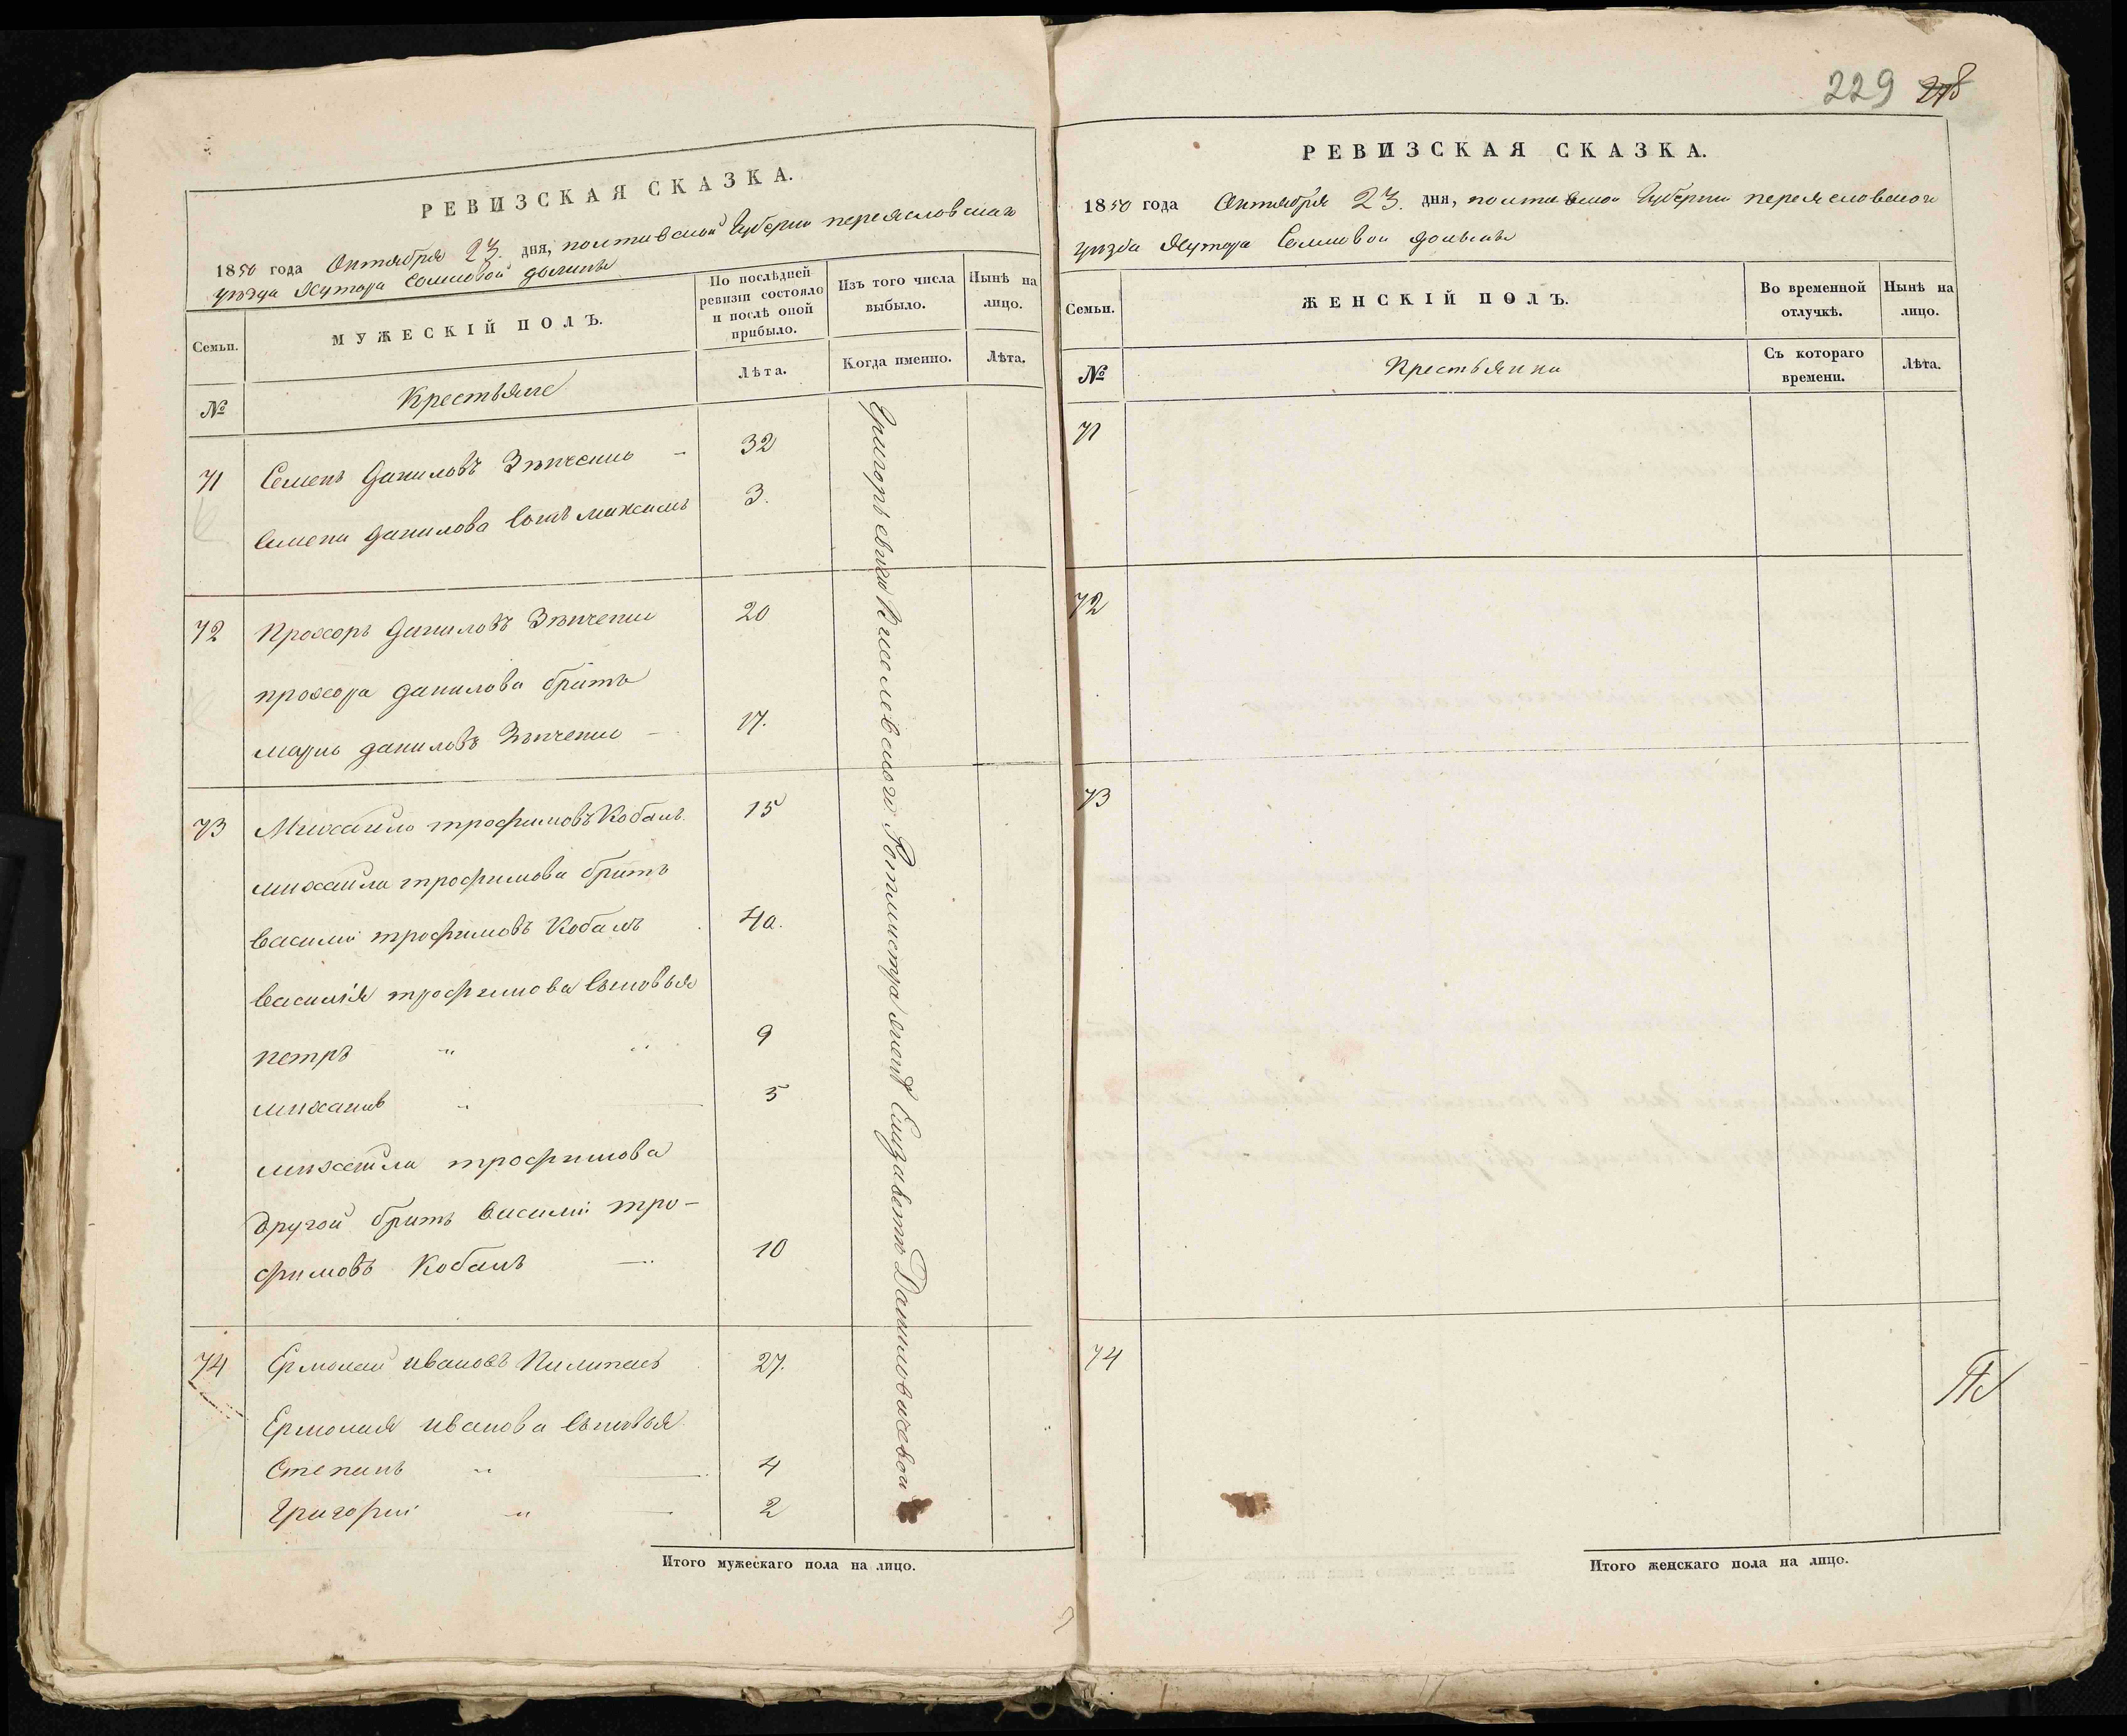 РЕВИЗСКАЯ СКАЗКА.
1850 года Октября 23. дня, полтавской Губернии переясловскаго
уезда Хутора Сомковой долины
Семьи.
МУЖЕСКІЙ ПОЛЪ.
По послѣдней ревизіи состояло и послѣ оной прибыло.
Изъ того числа выбыло.
Нынѣ на лицо.
№
Крестьяне
Лѣта.
Когда именно.
Лѣта.
71 Семенъ даниловъ Зѣнченко - 32
Семена данилова сынъ максимъ 3.
72 Прохоръ даниловъ Зѣнченко 20
прохора данилова братъ
марко даниловъ Зѣнченко - 17.
73 Михайло трофимовъ Кобанъ. 15
михайла трофимова братъ
василий трофимовъ Кобанъ 40.
василія трофимова сыновья
петръ " " 9
михаилъ " 5
михайла трофимова
другой братъ василий тро-
фимовъ Кобанъ 10
74 Ермолай ивановъ Пилипасъ 27.
Ермолая иванова сыновья
Степанъ " 4
Григорий " 2
Ротмистра женѣ Елизаветѣ
Итого мужескаго пола на лицо.
229 228
РЕВИЗСКАЯ СКАЗКА.
1850 года Октября 23. дня, полтавской Губернии переясловского
уезда Хутора Сомковой долины
Семьи.
ЖЕНСКІЙ ПОЛЪ.
Во временной отлучкѣ.
Нынѣ на лицо.
№
Крестьянки
Съ котораго времени.
Лѣта.
71
72
73
74
Итого женскаго пола на лицо.